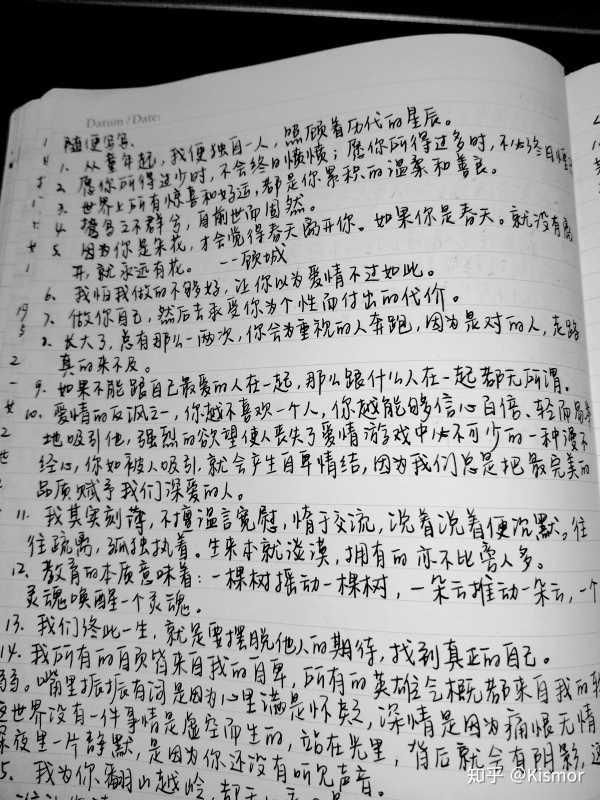 Datum / Date:
随便写写
1. 从童年起，我便独自一人，照顾着历代的星辰。
2. 愿你所得过少时，不会终日愤愤；愿你所得过多时，不必终日
3. 世界上所有惊喜和好运，都是你累积的温柔和善良。
4. 鸷鸟之不群兮，自前世而固然。
5. 因为你是朵花，才会觉得春天离开你。如果你是春天。就没有离
开，就永远有花。 ——顾城
6. 我怕我做的不够好，让你以为爱情不过如此。
7. 做你自己，然后去承受你为个性而付出的代价。
8. 长大了，总有那么一两次，你会为重视的人奔跑，因为是对的人，走路
真的来不及。
9. 如果不能跟自己最爱的人在一起，那么跟什么人在一起都无所谓。
10. 爱情的反讽之一，你越不喜欢一个人，你越能够信心百倍、轻而易举
地吸引他，强烈的欲望使人丧失了爱情游戏中必不可少的一种漫不
经心，你如被人吸引，就会产生自卑情结，因为我们总是把最完美的
品质赋予我们深爱的人。
11. 我其实刻薄，不擅温言宽慰，惰于交流，说着说着便沉默。往
往疏离，孤独执着。生来本就淡漠，拥有的亦不比旁人多。
12. 教育的本质意味着：一棵树摇动一棵树，一朵云推动一朵云，一个
灵魂唤醒一个灵魂。
13. 我们终此一生，就是要摆脱他人的期待，找到真正的自己。
14. 我所有的自负皆来自我的自卑，所有的英雄气概都来自我的软
弱。嘴里振振有词是因为心里满是怀疑，深情是因为痛恨无情
世界没有一件事情是虚空而生的，站在光里，背后就会有阴影，这
深夜里一片静默，是因为你还没有听见声音。
5. 我为你翻山越岭，都无
知乎 @Kismor